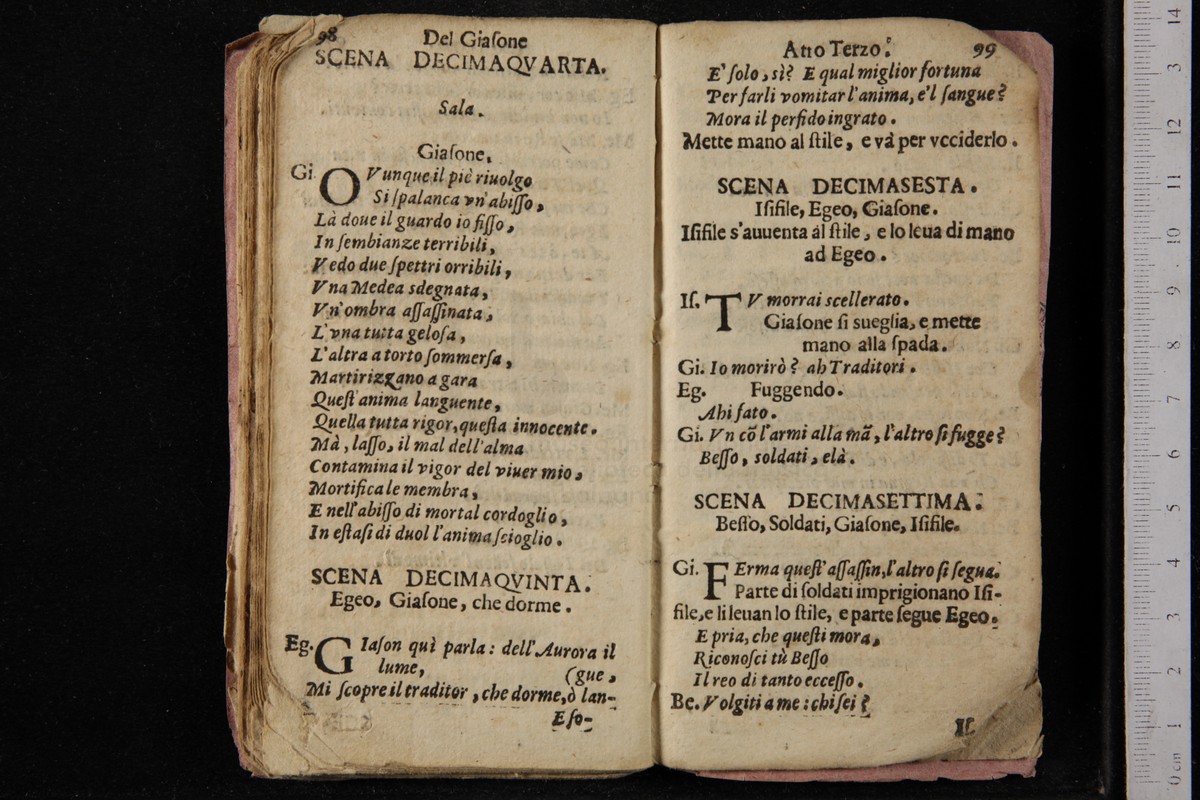 98
Del Giaſone
SCENA DECIMAQVARTA.
Sala.
Giaſone.
Gi. OVunque il piè riuolgo
Si ſpalanca vn'abiſſo,
Là doue il guardo io fiſſo,
In ſembianze terribili,
Vedo due ſpettri orribili,
Vna Medea sdegnata,
Vn'ombra aſſaſſinata,
L'vna tutta geloſa,
L'altra a torto ſommerſa,
Martirizzano a gara
Queſt'anima languente,
Quella tutta rigor, queſta innocente.
Mà, laſſo, il mal dell'alma
Contamina il vigor del viuer mio,
Mortifica le membra,
E nell'abiſſo di mortal cordoglio,
In eſtaſi di duol l'anima ſcioglio.
SCENA DECIMAQVINTA.
Egeo, Giaſone, che dorme.
Eg. GIaſon quì parla: dell'Aurora il
lume, (gue,
Mi ſcopre il traditor, che dorme, ò lan-
E ſo-
Atto Terzo. 99
E' ſolo, sì? E qual miglior fortuna
Per farli vomitar l'anima, e'l ſangue?
Mora il perfido ingrato.
Mette mano al ſtile, e và per vcciderlo.
SCENA DECIMASESTA.
Iſifile, Egeo, Giaſone.
Iſifile s'auuenta al ſtile, e lo leua di mano
ad Egeo.
Iſ. TV morrai scellerato.
Giaſone ſi sueglia, e mette
mano alla ſpada.
Gi. Io morirò? ah Traditori.
Eg. Fuggendo.
Ahi fato.
Gi. Vn cõ l'armi alla mã, l'altro ſi fugge?
Beſſo, soldati, elà.
SCENA DECIMASETTIMA.
Beſſo, Soldati, Giaſone, Iſifile.
Gi. FErma queſt'aſſaſſin, l'altro ſi ſegua.
Parte di ſoldati imprigionano Iſi-
file, e li leuan lo ſtile, e parte ſegue Egeo.
E pria, che queſti mora,
Riconoſci tù Beſſo
Il reo di tanto ecceſſo.
Be. Volgiti a me: chi ſei?